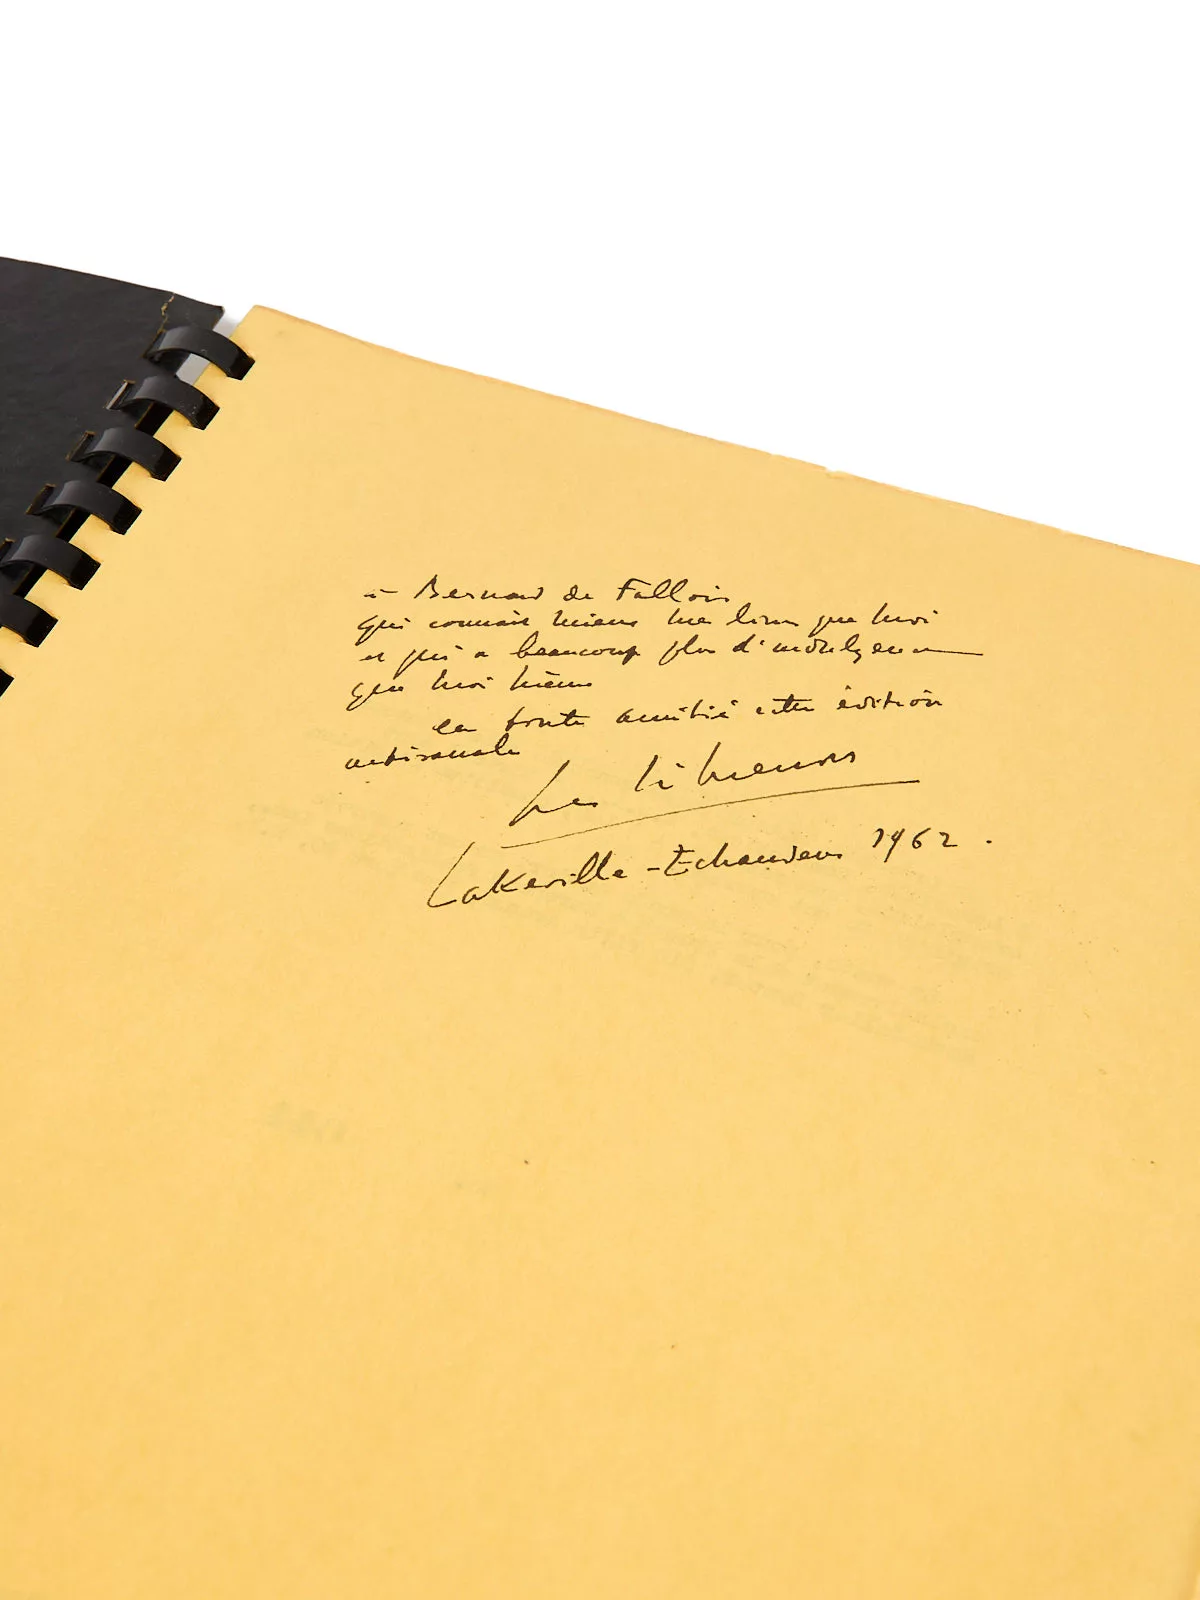 à Bernard de Fallois
qui connait mieux mes livres que moi
et qui a beaucoup plus d'indulgence
que moi même
en toute amitié cette édition
artisanale
Geo Simenon
Lakeville - Echandens 1962.